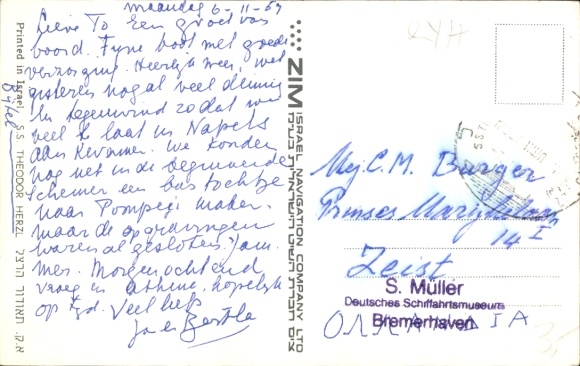 maandag 6-11-67
Lieve To Een groet van
boord. Fijne boot met goede
verzorging. Heerlijk weer, wel
gisteren nogal veel deining
en tegenwind zodat we
veel te laat in Napels
aan kwamen. We konden
nog net in de beginnende
schemer een bustochtje
naar Pompeji maken.
maar de opgravingen
waren al gesloten. Jam-
mer. Morgenochtend
vroeg in Athene. hopelijk
op tijd. Veel liefs
Printed in Israel S.S. THEODOR HERZL א.ק. תאודור הרצל
ZIM ISRAEL NAVIGATION COMPANY LTD
צים חברת השיט הישראלית בע״מ
Mej. C.M. Burger
14 I
Zeist
S. Müller
Deutsches Schiffahrtsmuseum
Bremerhaven